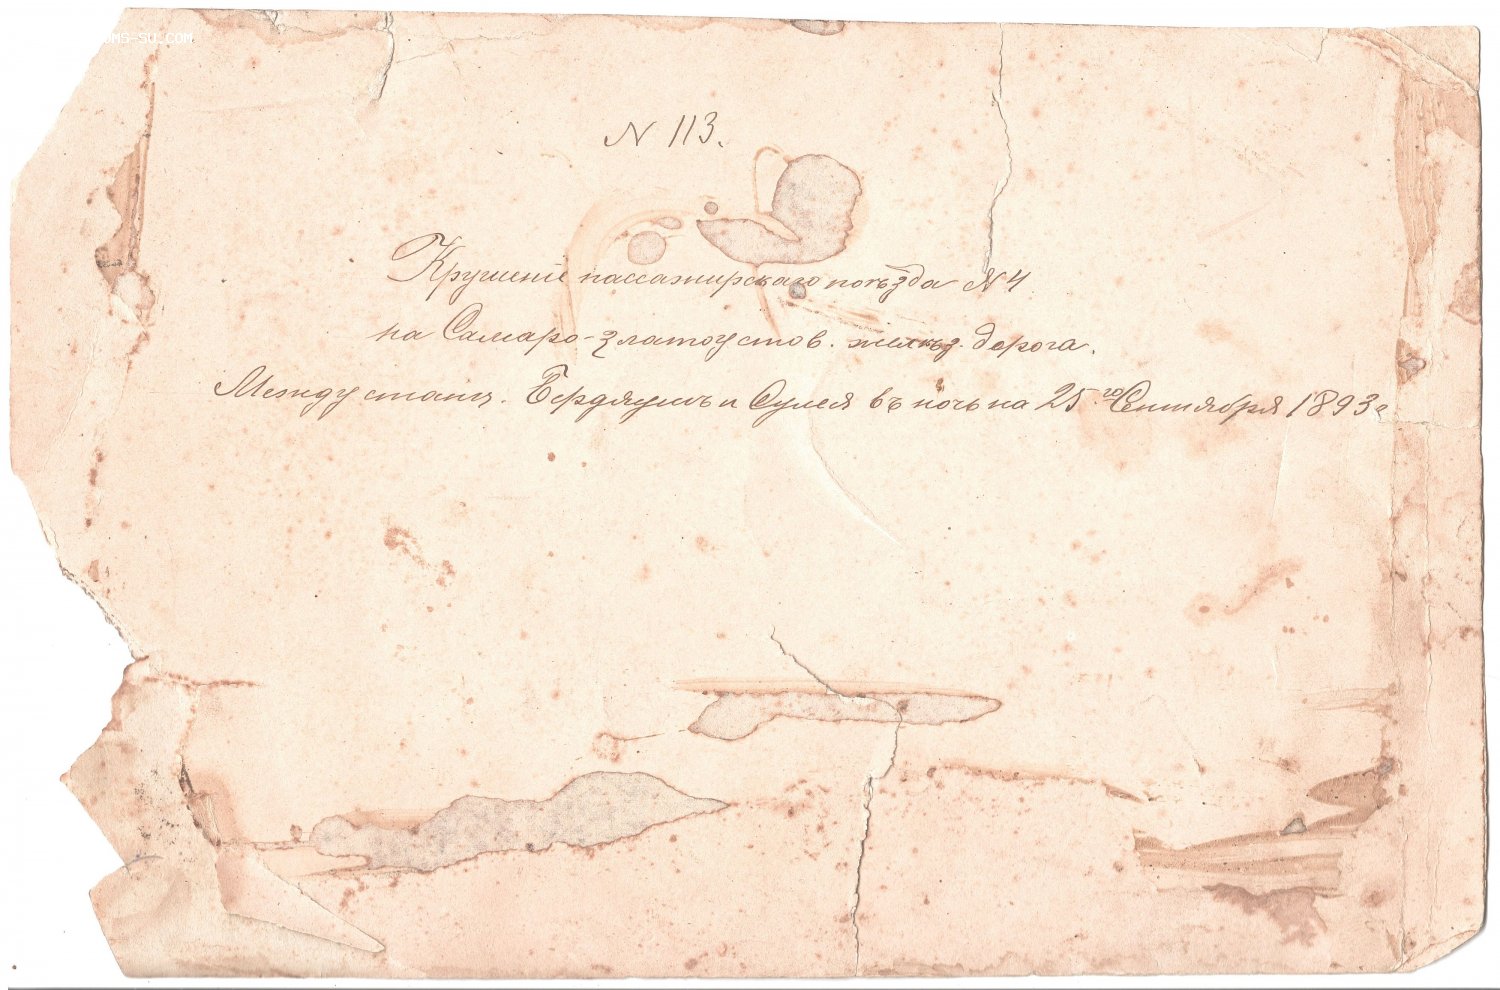 OMS-SU.COM
N 113.
Крушенiе пассажирскаго поѣзда N 4
на Самаро-Златоустов. желѣз. дорога.
Между станц. Бердяушъ и Сулея въ ночь на 25го Сентября 1893г